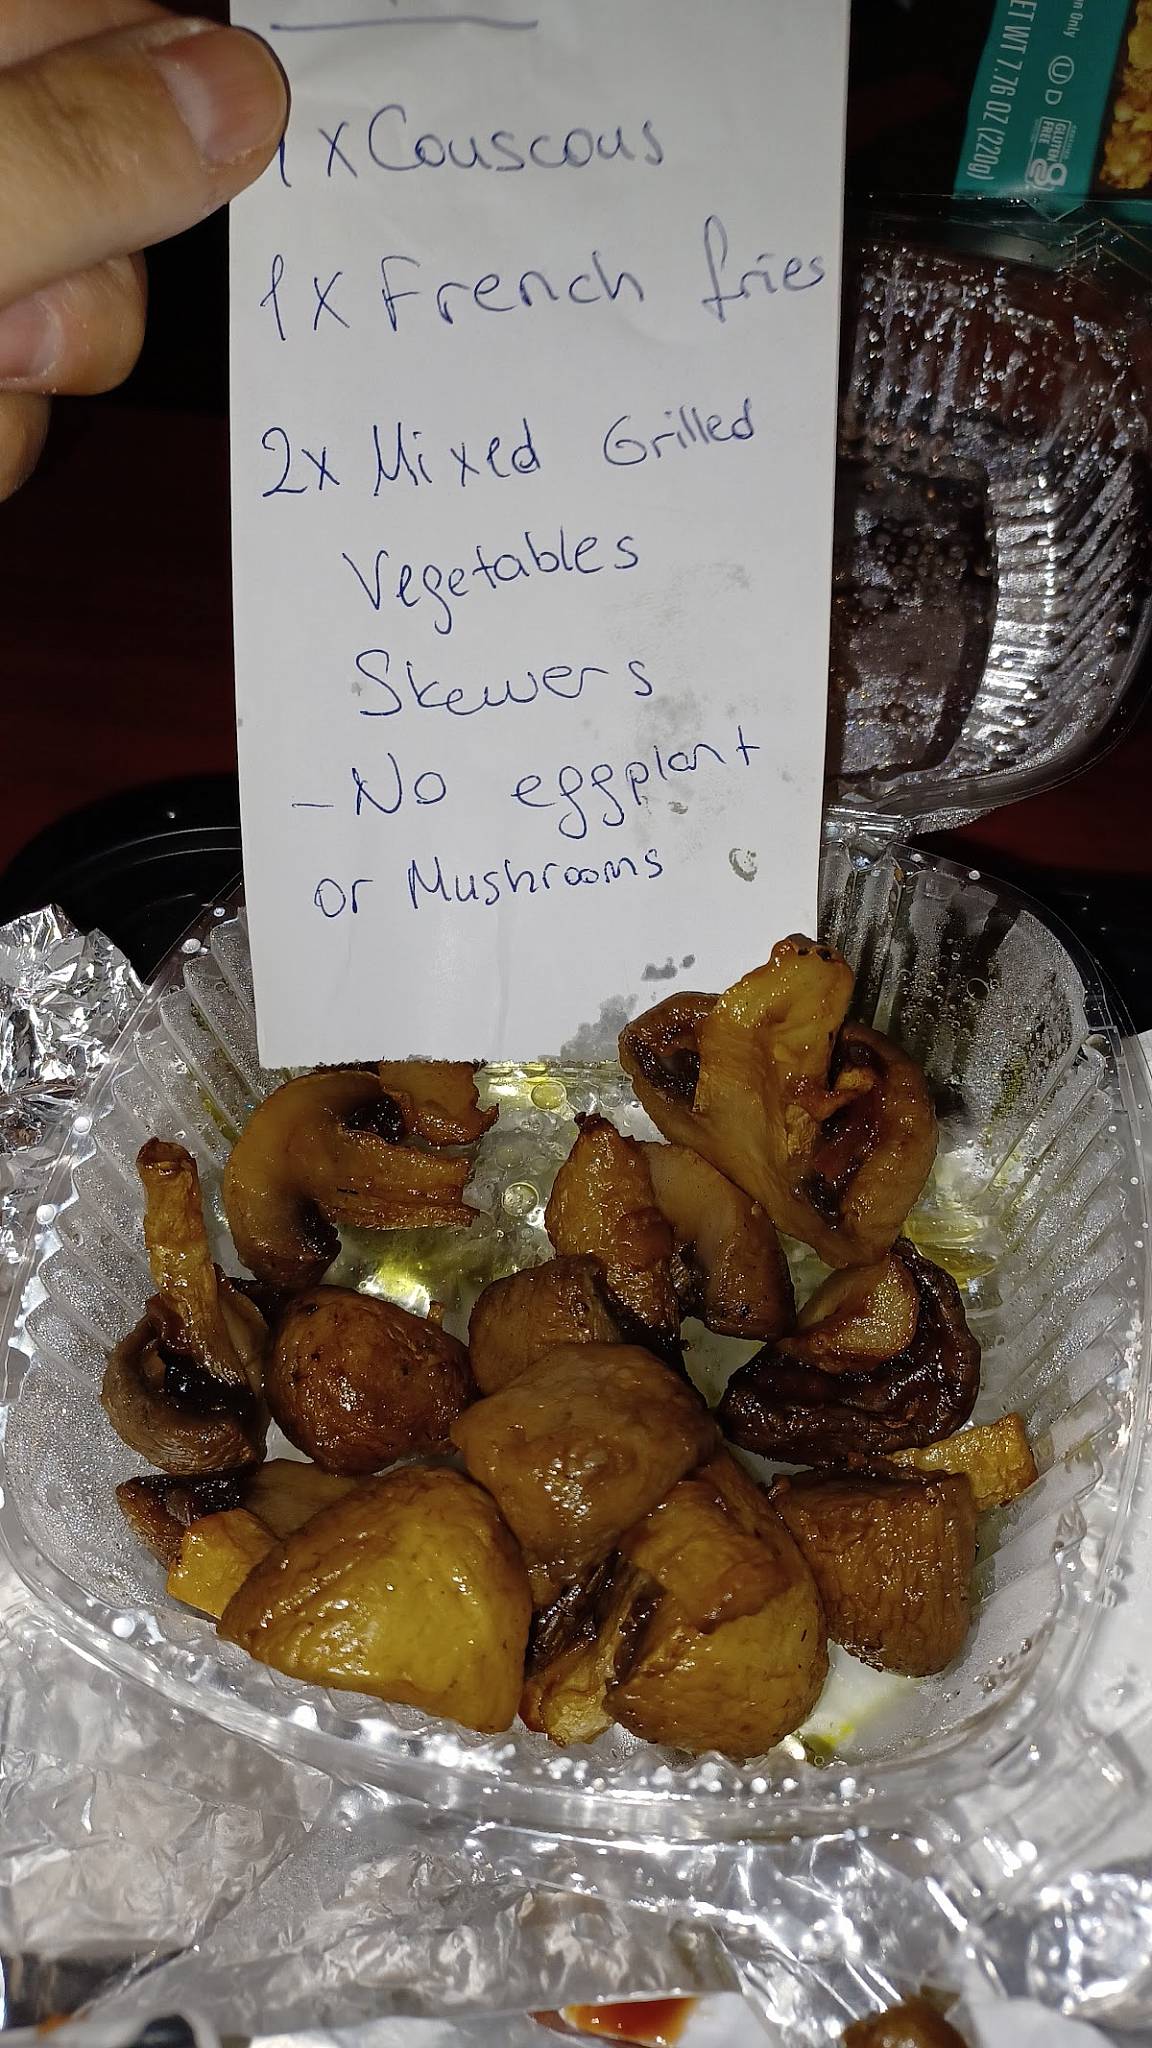 1 x Couscous
1x French fries
2x Mixed Grilled
Vegetables
Skewers
- No eggplant
or Mushrooms
n Only
ET WT 7.76 OZ (220g)
U D
CERTIFIED
GLUTEN
FREE